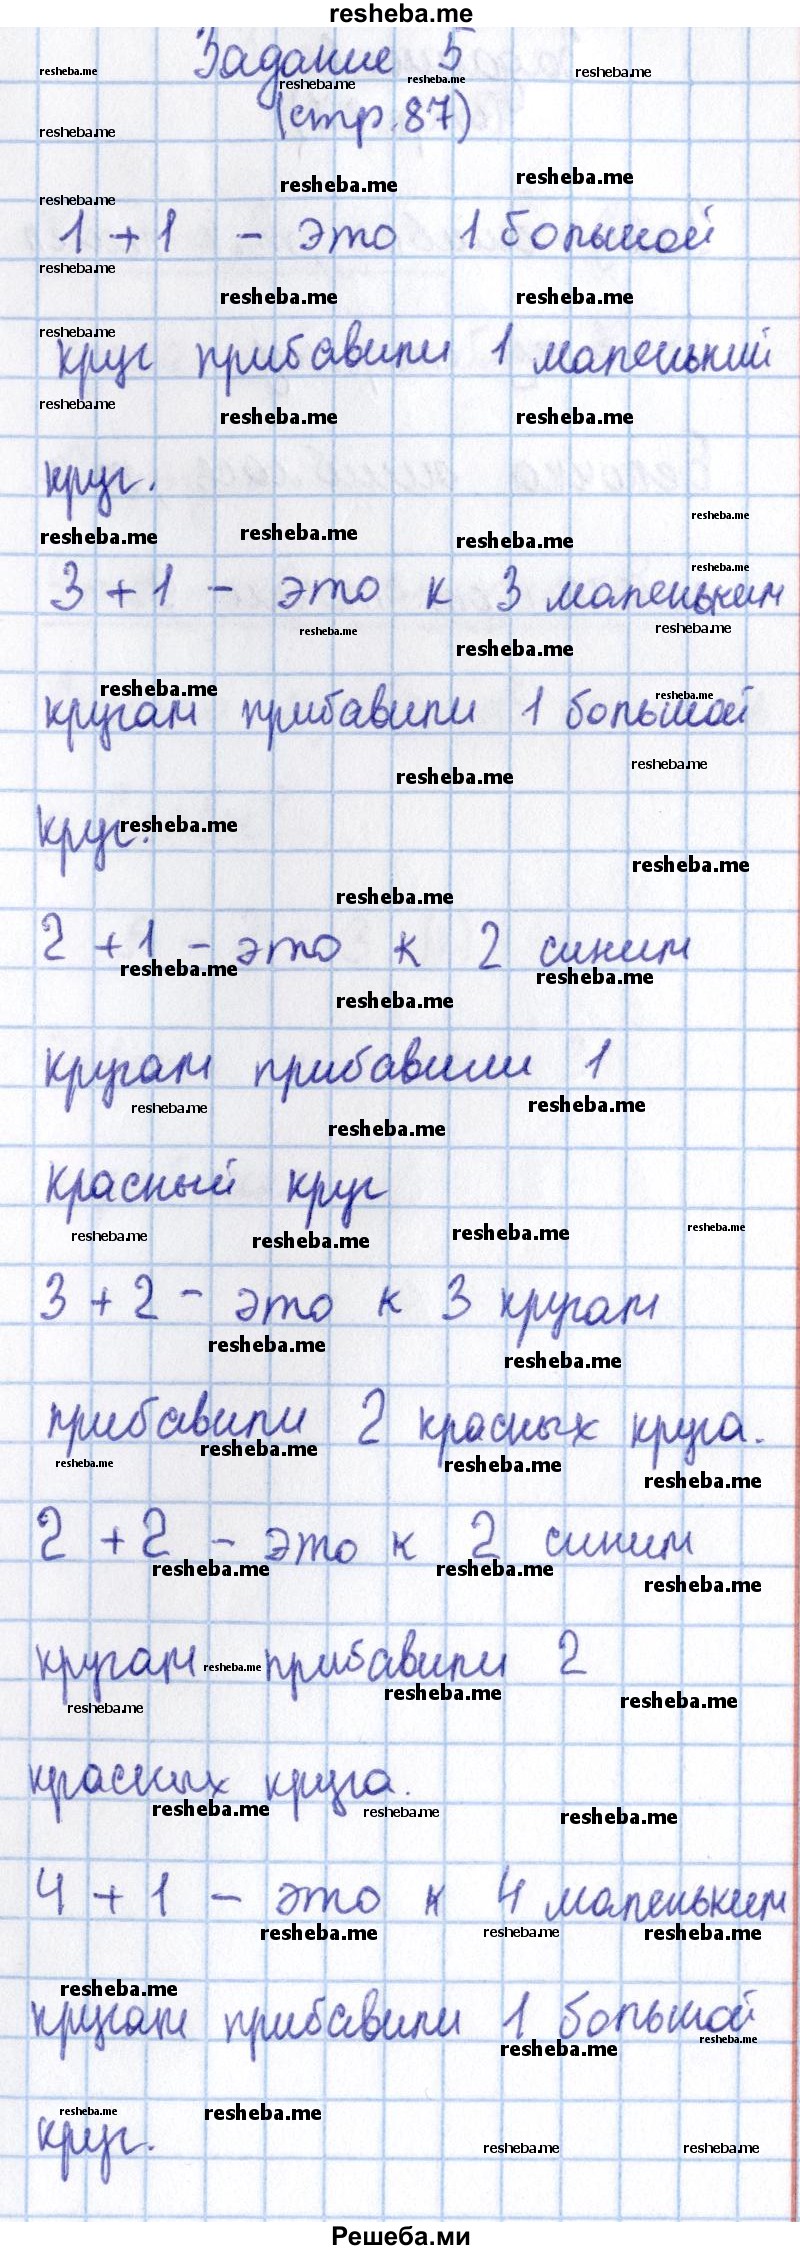 resheba.me
Задание 5
(стр.87)
1 + 1 - это 1 большой
круг прибавили 1 маленький
круг.
3 + 1 - это к 3 маленьким
кругам прибавили 1 большой
круг.
2 + 1 - это к 2 синим
кругам прибавили 1
красный круг
3 + 2 - это к 3 кругам
прибавили 2 красных круга.
2 + 2 - это к 2 синим
кругам прибавили 2
красных круга.
4 + 1 - это к 4 маленьким
кругам прибавили 1 большой
круг.
Решеба.ми